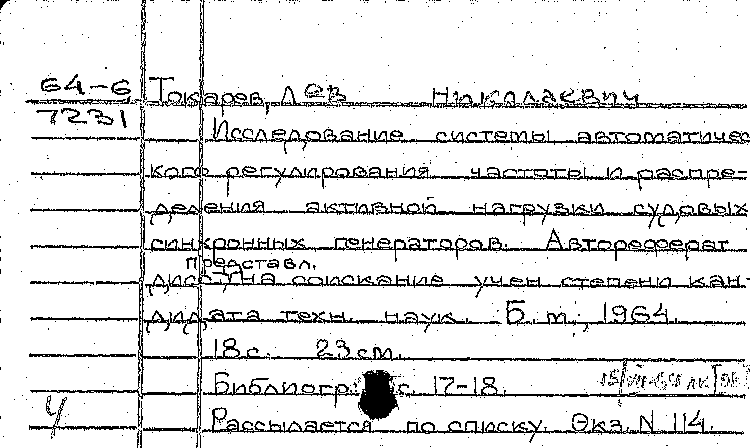 64-6 Токарев, Лев Николаевич
7231
Исследование системы автоматичес
кого регулирования частоты и распре-
деления активной нагрузки судовых
синхронных генераторов. Автореферат
представл.
дисс. на соискание учен степени кан-
дидата техн. наук. Б. м., 1964.
18 с. 23 см.
Библиогр.: с. 17-18.
Рассылается по списку. Экз. N 114.